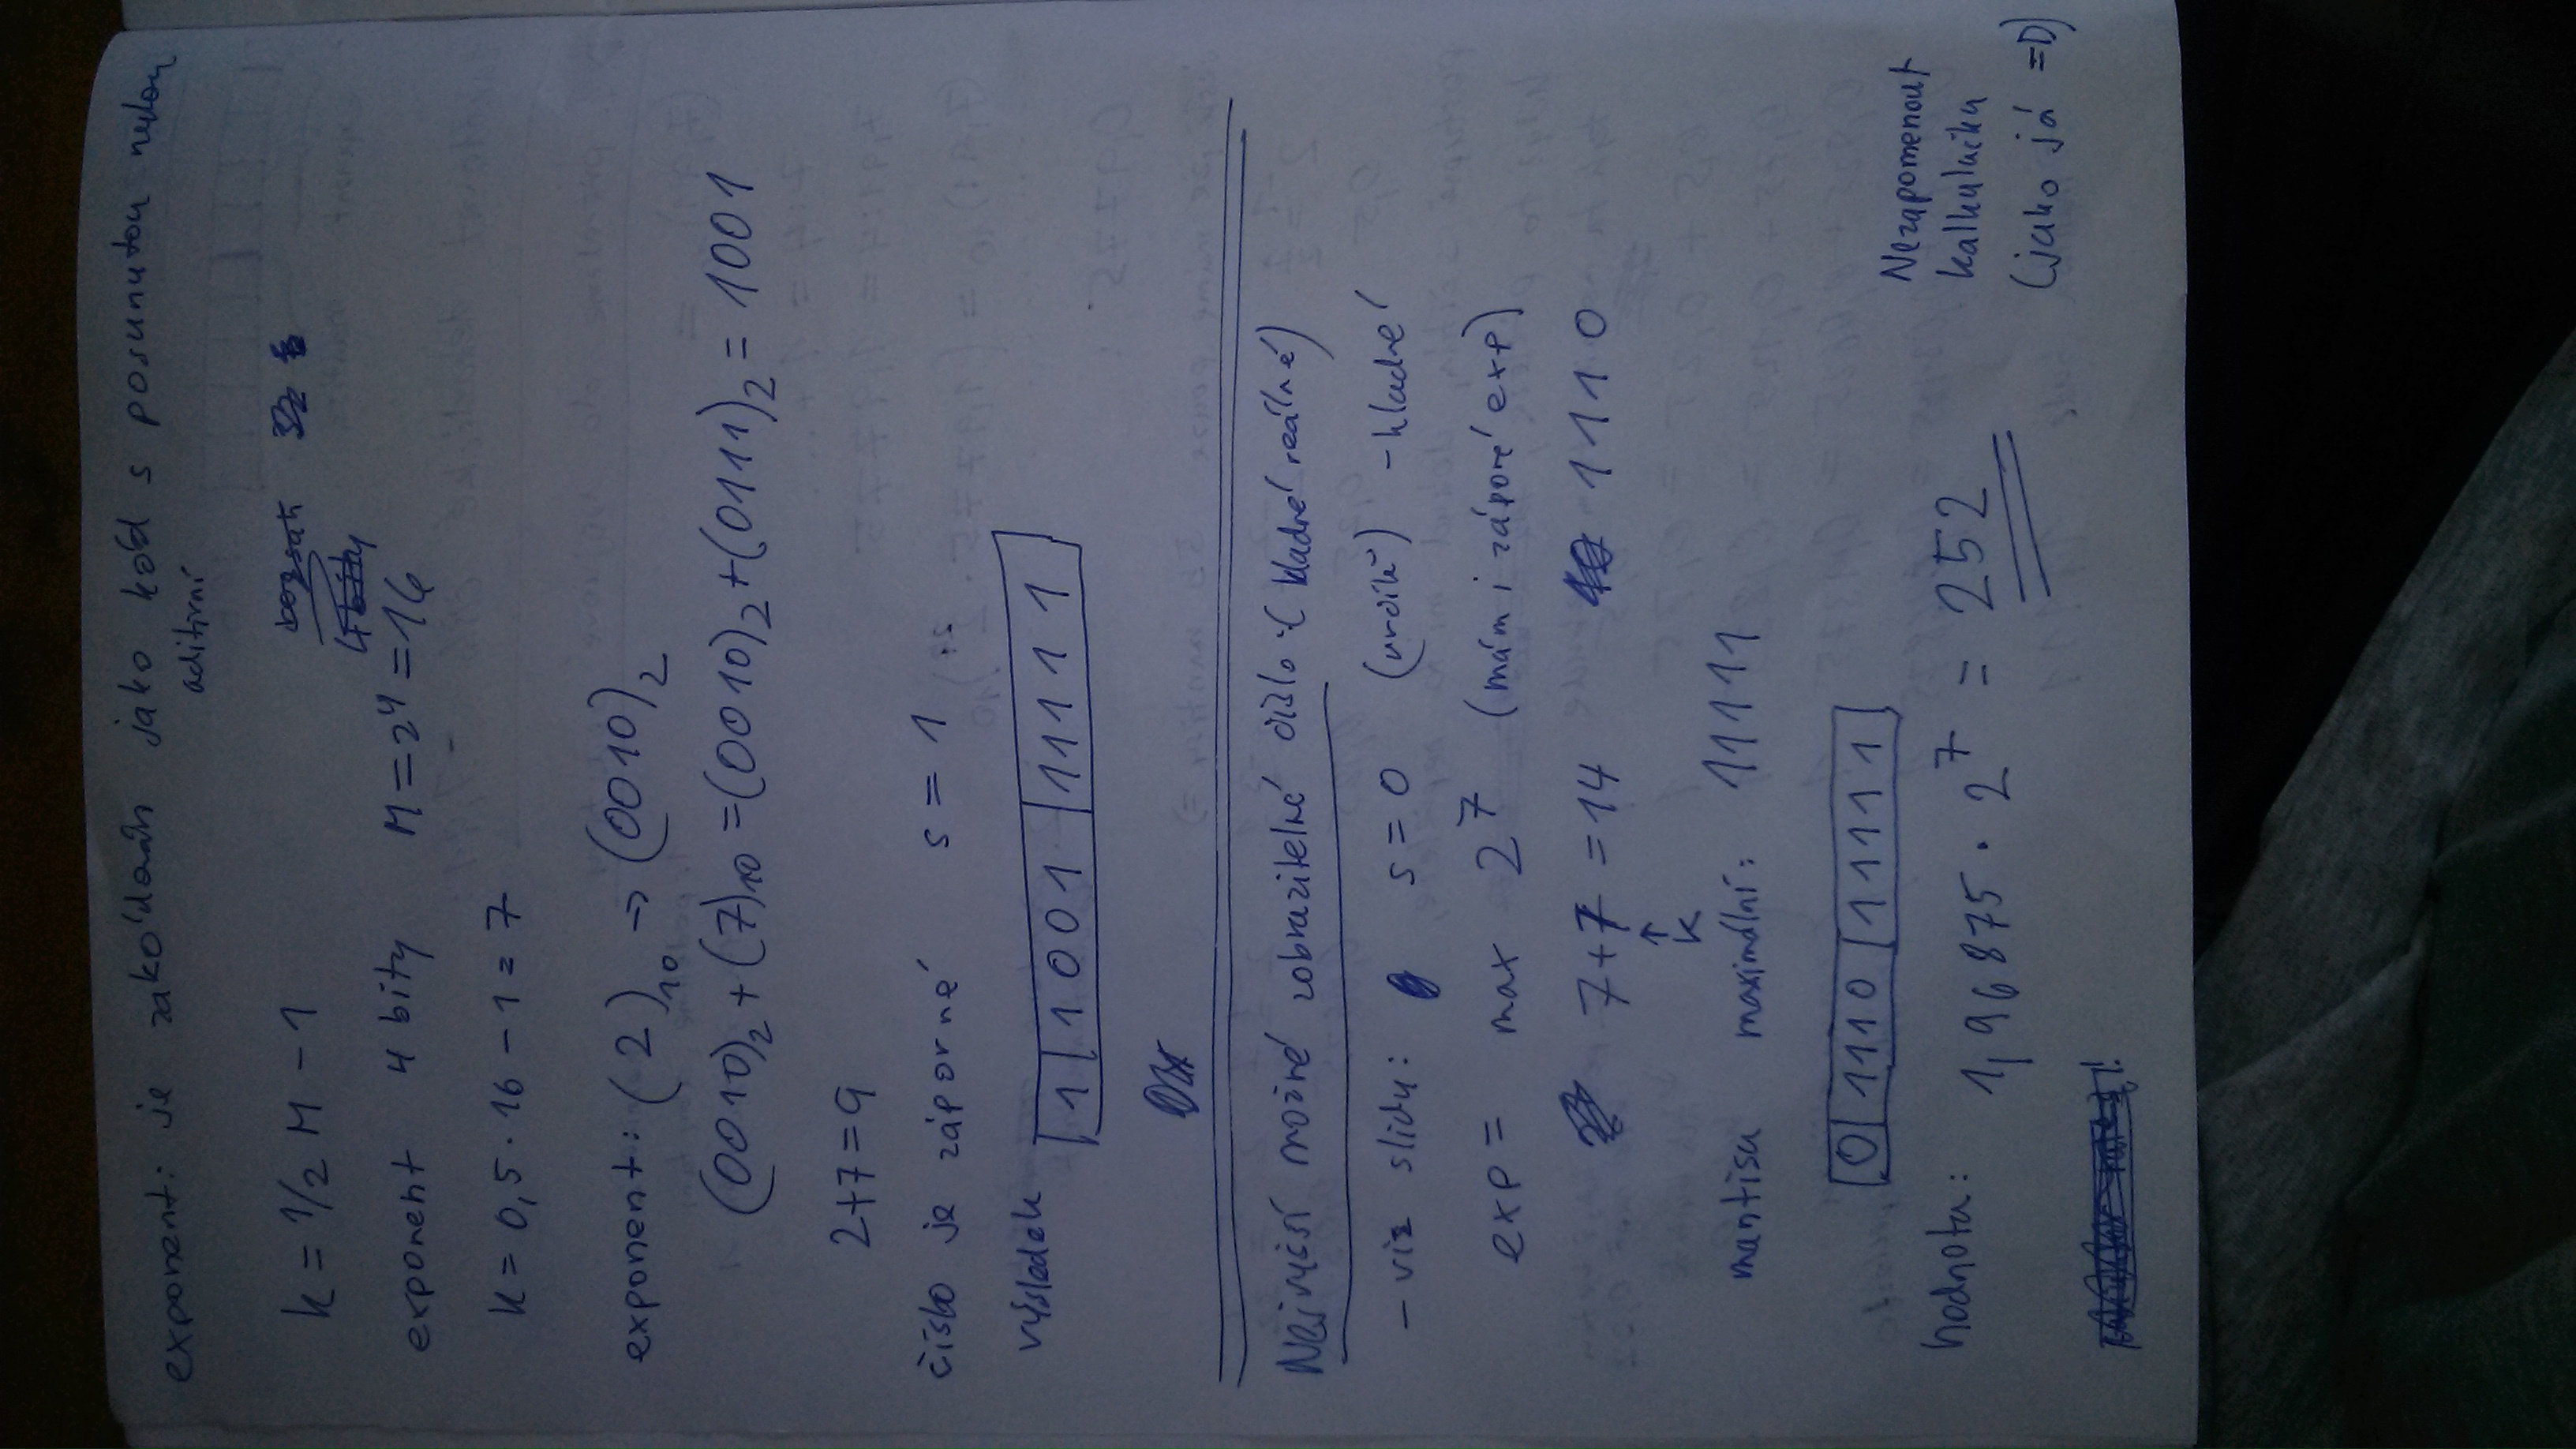 exponent: je zakódován jako kód s posunutou nulou
aditivní
k = 1/2 M - 1
exponent 4 bity M = 2⁴ = 16
k = 0,5 · 16 - 1 = 7
exponent: (2)₁₀ → (0010)₂
(0010)₂ + (7)₁₀ = (0010)₂ + (0111)₂ = 1001
2+7=9
číslo je záporné s = 1
výsledek 1 | 1001 | 11111
Největší možné zobrazitelné číslo: (kladné reálné)
- viz slidy: s=0 (určitě) - kladné
exp = max 2⁷ (mám i záporné exp)
7+7 = 14 1110
↑
k
mantisa maximální: 11111
0 | 1110 | 11111
hodnota: 1,96875 · 2⁷ = 252
Nezapomenout
kalkulačku
(jako já =D)